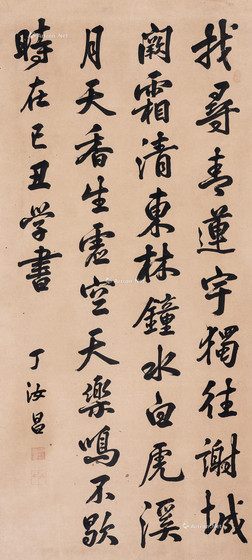 找尋青蓮宇獨往謝城
闕霜清東林鐘水白虎溪
月天香生虛空天樂鳴不歇
時在己丑学書
丁汝昌